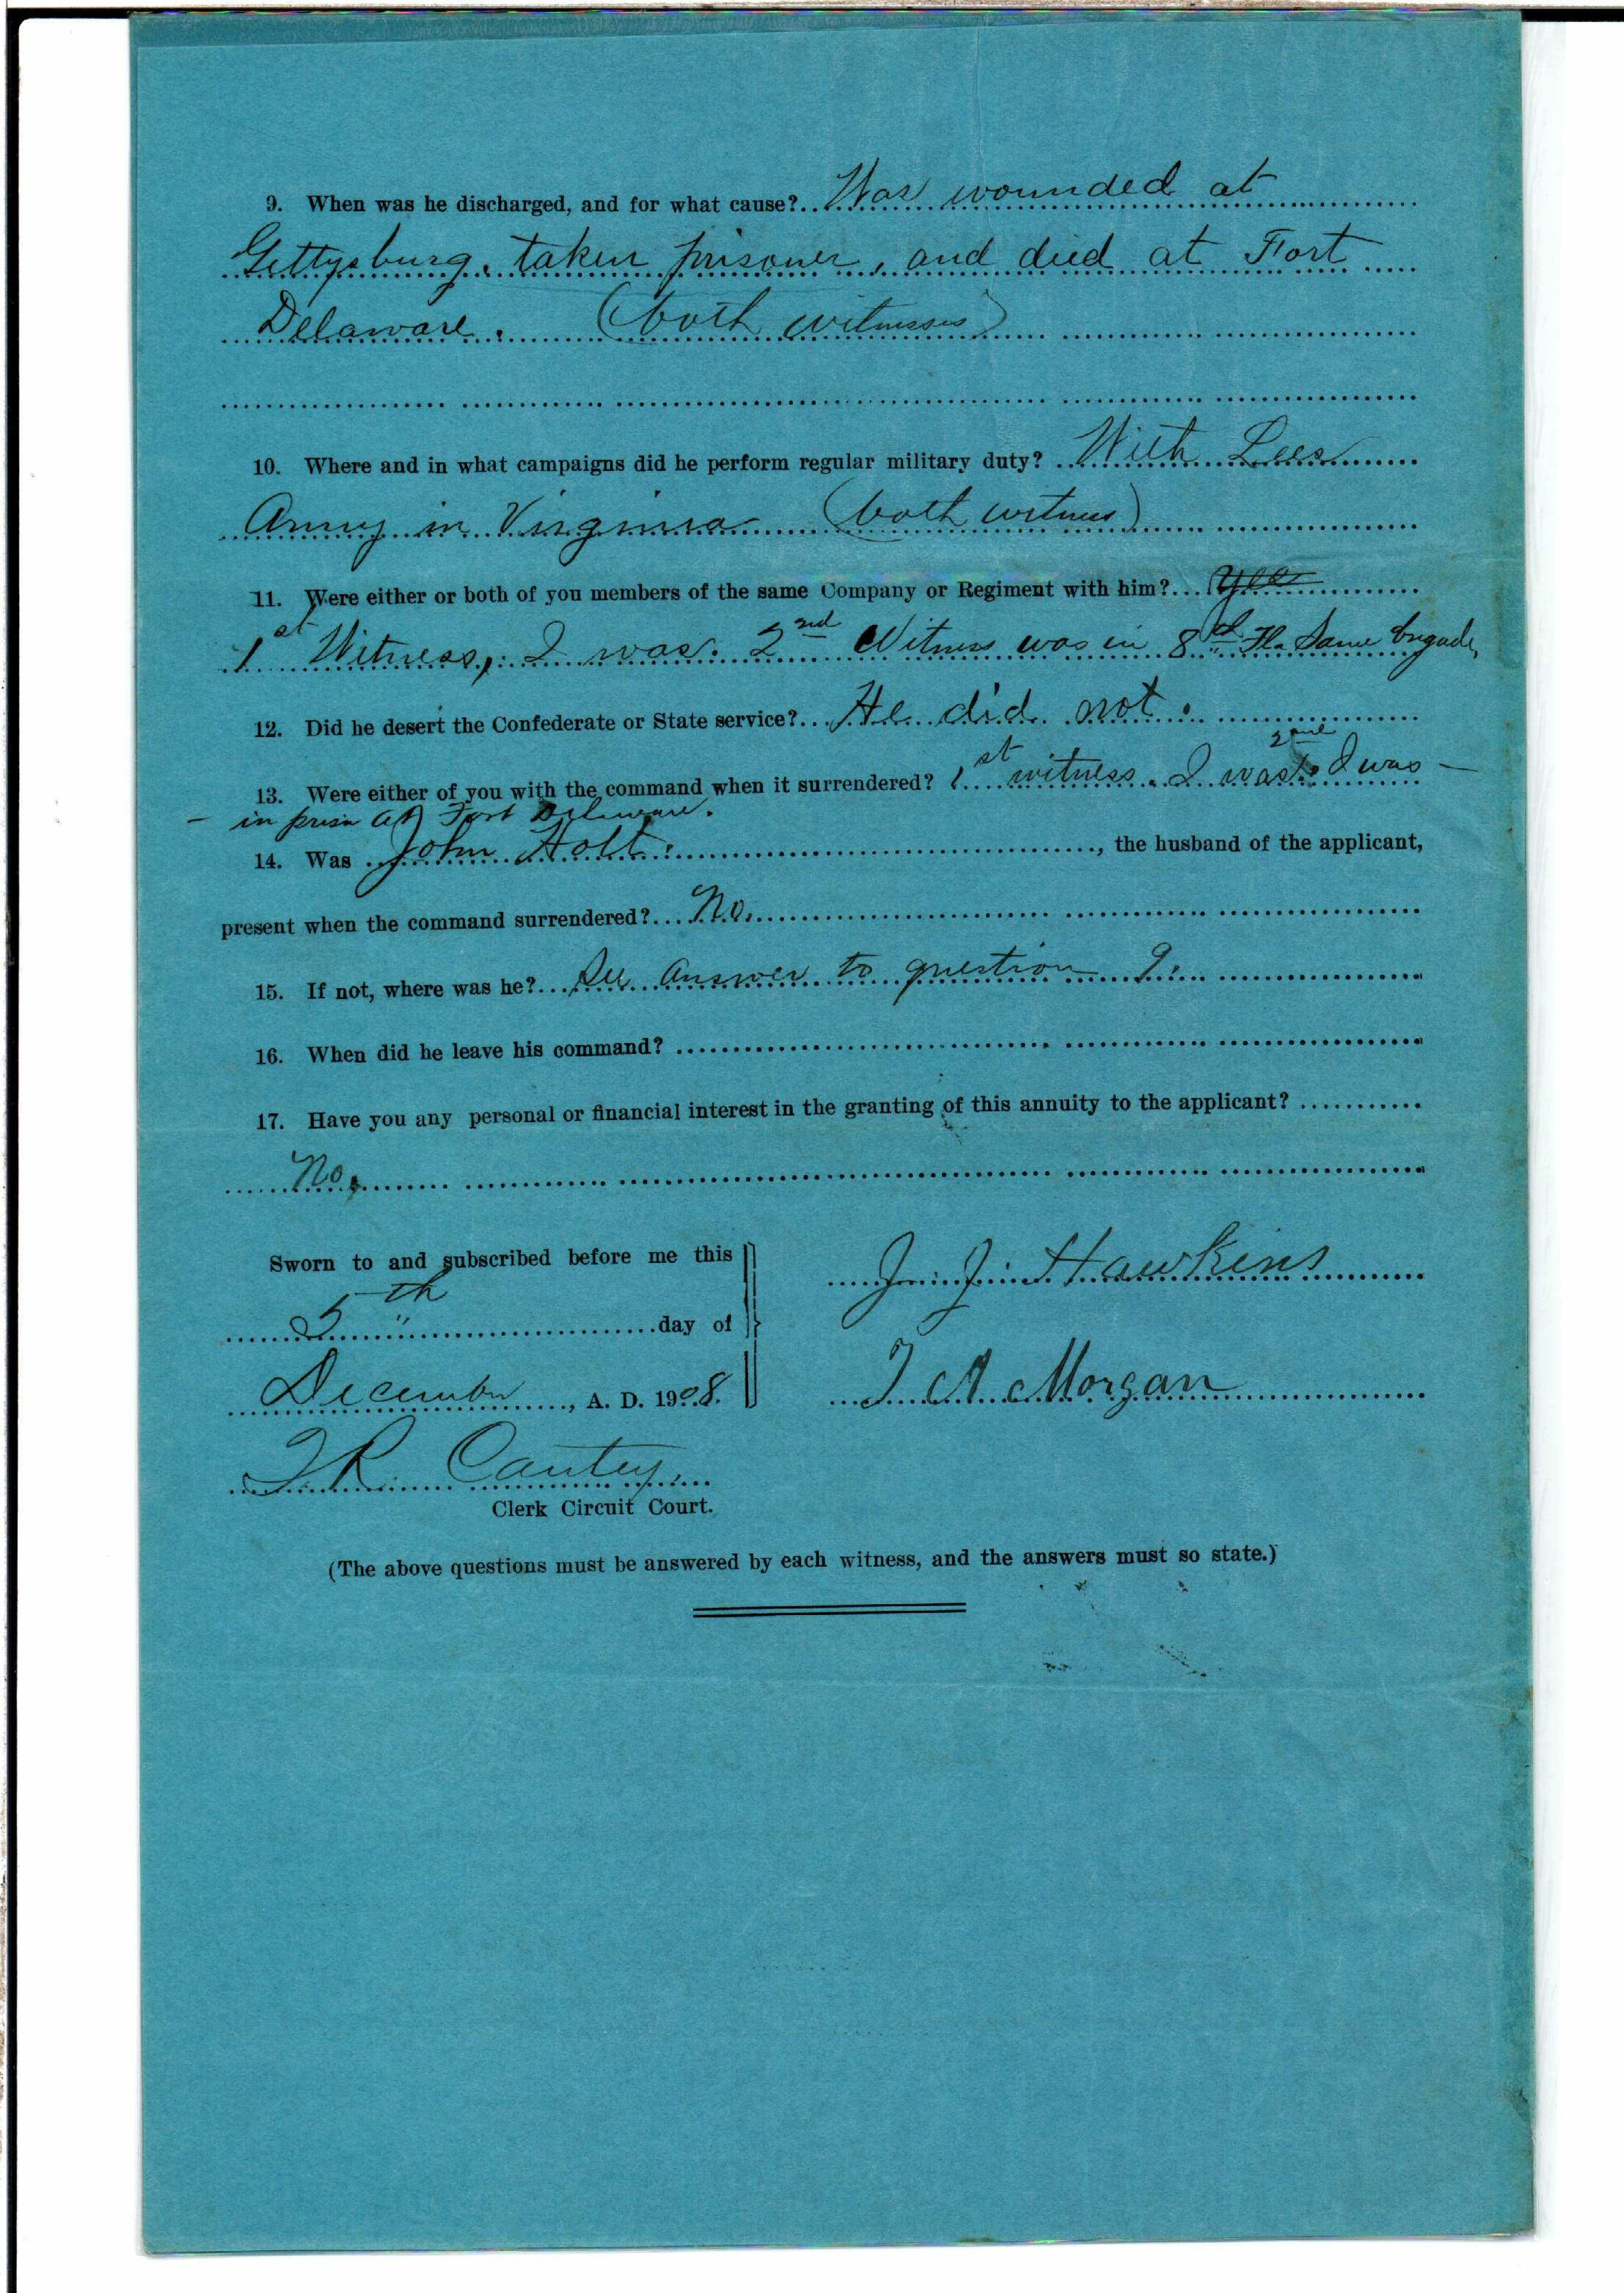 9. When was he discharged, and for what cause? Was wounded at
Gettysburg, taken prisoner, and died at Fort
Delaware. (both witnesses)
10. Where and in what campaigns did he perform regular military duty? With Lees
Army in Virginia (both witness)
11. Were either or both of you members of the same Company or Regiment with him? Yes
1st Witness, I was. 2nd Witness was in 8th Fla Same brigade,
12. Did he desert the Confederate or State service? He did not.
13. Were either of you with the command when it surrendered? 1st witness. I was. 2nd I was –
– in prison at Fort Delaware.
14. Was John Holt, the husband of the applicant,
present when the command surrendered? No.
15. If not, where was he? See answer to question 9.
16. When did he leave his command?
17. Have you any personal or financial interest in the granting of this annuity to the applicant?
No.
Sworn to and subscribed before me this
5th day of
December, A. D. 1908.
J. J. Hawkins
T A Morgan
Cantey
Clerk Circuit Court.
(The above questions must be answered by each witness, and the answers must so state.)